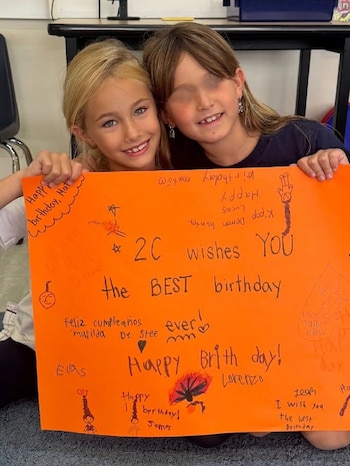 Happy
birthday
birthday
Happy
Lucas
2C wishes YOU
the BEST birthday
Feliz cumpleaños
matilda De Stee ever!
Happy Brith day!
Lorenzo
Elias
Happy
birthday!
James
Leah
I wish you
the best
Birthday